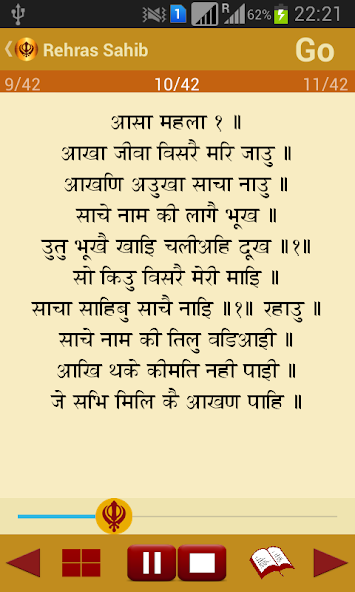 1 R 62% 22:21
Rehras Sahib Go
9/42 10/42 11/42
आसा महला १ ॥
आखा जीवा विसरै मरि जाउ ॥
आखणि अउखा साचा नाउ ॥
साचे नाम की लागै भूख ॥
उतु भूखै खाइि चलीअहि दूख ॥१॥
सो किउ विसरै मेरी माइि ॥
साचा साहिबु साचै नाइि ॥१॥ रहाउ ॥
साचे नाम की तिलु वडिआइी ॥
आखि थके कीमति नही पाइी ॥
जे सभि मिलि कै आखण पाहि ॥